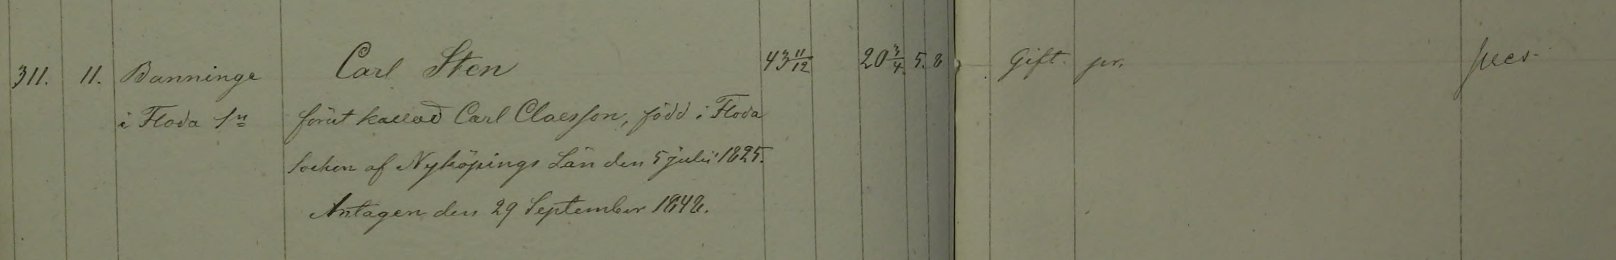 311. 11. Banninge Carl Sten 43 11/12 20 3/4 5. 8 Gift. pr.
i Floda Sn förut kallad Carl Claesson, född i Floda
Socken af Nyköpings Län den 5 Julii 1825.
Antagen den 29 September 1848.